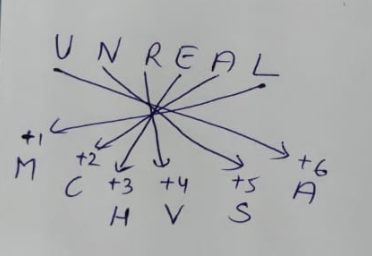 U N R E A L
+1 +2 +3 +4 +5 +6
M C H V S A